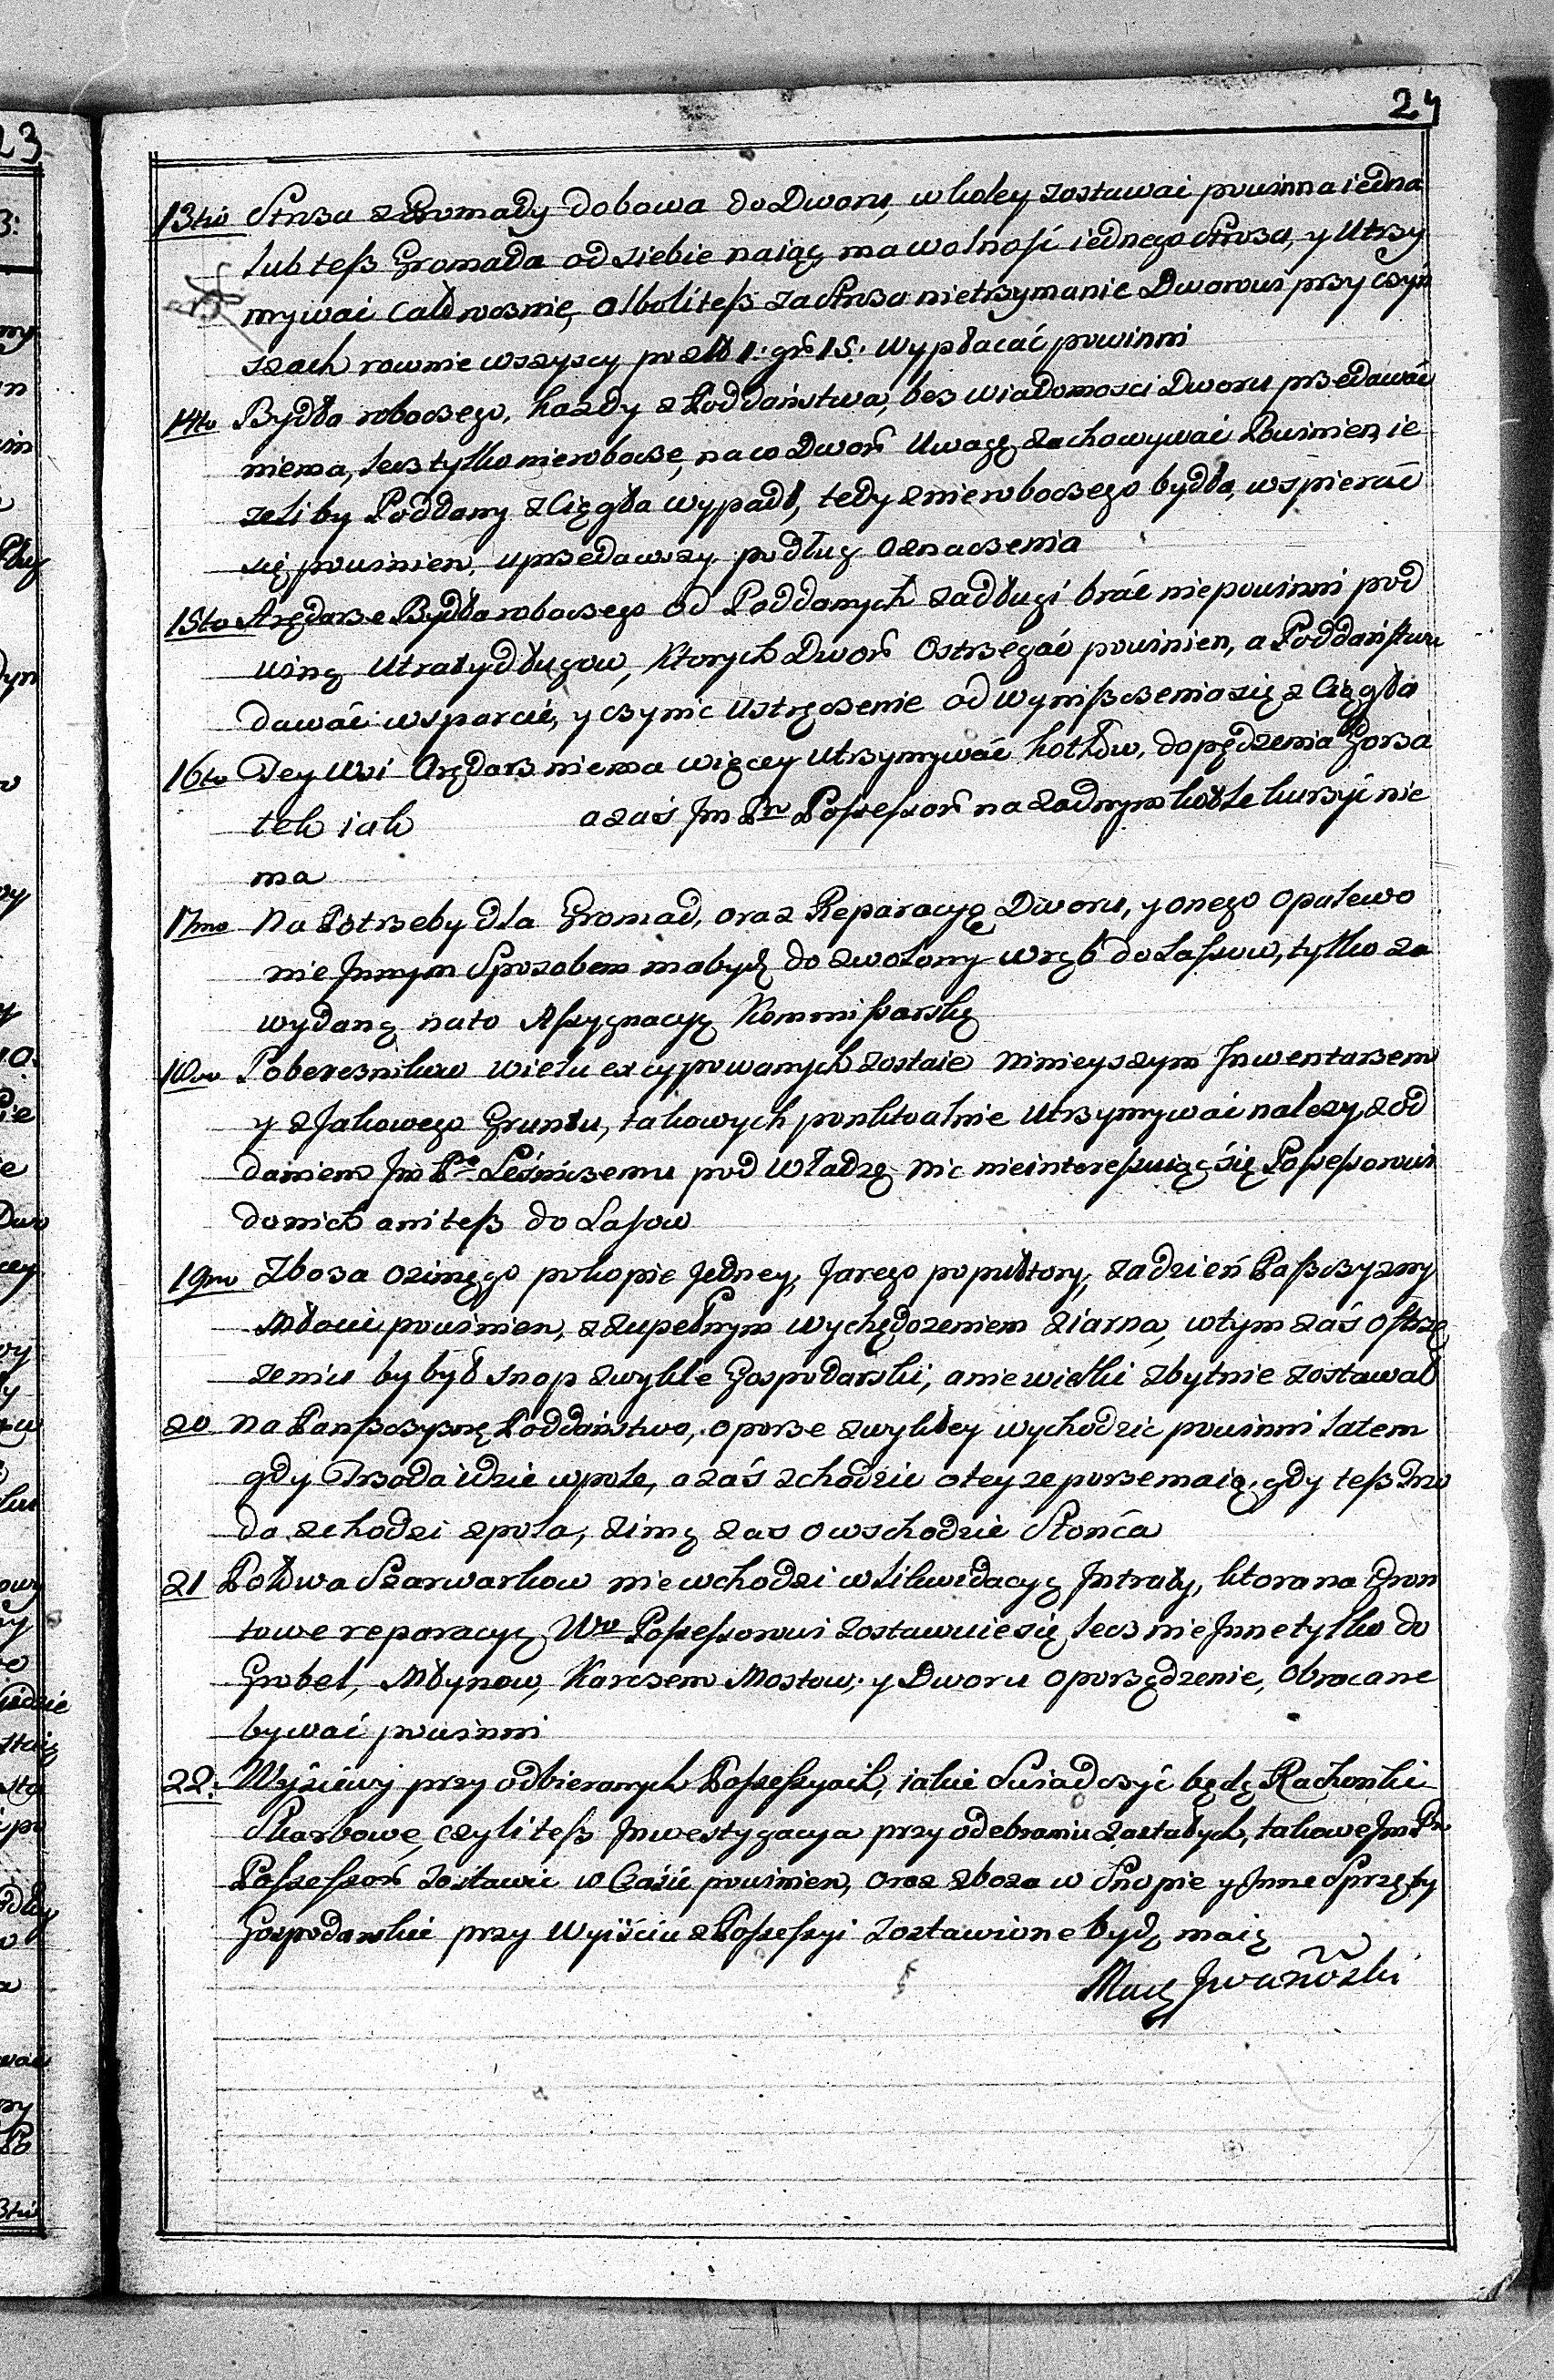 24
13tio Struża z Gromady dobowa do Dworu, w koley zostawać powinna iedna
lub tesz Gromada od siebie naiąć ma wolność iednego Struża, y Utrzy
mywać Całorocznie, albolitesz za Struża nietrzymanie Dworowi przy czyn
szach rownie wszyscy po zł 1: gr 15: wypłacać powinni
14to Bydła roboczego, każdy z Poddaństwa, bez wiadomosci Dworu przedawać
niema, lecz tylko nierobocze, na co Dwor Uwagę zachowywać Powinien, ie
żeliby Poddany z Cięgła wypadł, tedy z nieroboczego bydła, wspierać
się powinien, uprzedawszy podług oznaczenia
15to Arędarze Bydła roboczego od Poddanych za długi brać niepowinni pod
winą Utraty długow, Ktorych Dwor Ostrzegać powinien, a Poddaństwu
dawać wsparcie, y czynić Ustręczenie od wyniszczenia się z Cięgła
16to Tey Wsi Arędarz niema więcey Utrzymywać kotłow, do pędzenia Gorza
łek iak a zaś Jm Pn Possessor na żadnym kotle kurzyć nie
ma
17mo Na Potrzeby dla Gromad, oraz Reparacyę Dworu, y onego Opałewo
nie Jnnym Sposobem ma być dozwolony wrąb do Lassow, tylko za
wydaną na to Assygnacyą Kommissarską
18vo Pobereżnikow wielu excypowanych zostaie ninieyszym Jnwentarzem
y z Jakowego Gruntu, takowych punktualnie Utrzymywać należy z od
daniem Jm Pu Leśniczemu pod Władzę nic nieinteressuiąc się Possessorowi
do nich ani tesz do Lasow
19no Zboża ozimęgo po kopie Jedney, Jarego po pułtory, za dzień Paszczyzny
Młocic powinien, z zupełnym wychędożeniem ziarna, w tym zaś Ostrze
żeniu by był snop zwykle Gospodarski, a niewielki zbytnie zostawał
20 Na Panszczyznę Poddaństwo, o porze zwykłey wychodzić powinni latem
gdy Trzoda idzie w pole, a zaś zchodzić o tey że porze maią, gdy tesz Trzo
da zchodzi z pola, zimą zas o wschodzie Słonca
21 Połowa Szarwarkow nie wchodzi w Likwidacyę Jntraty, ktora na Gron
towe reparacyę Wu Possessorowi zostawuie się lecz nie Jnne tylko do
Grobel, Młynow, Karczem Mostow, y Dworu oporzędzenie, Obracane
bywać powinni
22. Wysiewy przy odbieranych Possessyach, iakie Swiadczyć będą Rachonki
Skarbowe, czyli tesz Jnwestygacya przy odebraniu zastałych, takowe Jm Pn
Possessor zostawić w Całości powinien, oraz zboża w Snopie y Jnne Sprzęty
Gospodarskie przy Wyiściu z Possessyi zostawione być maią